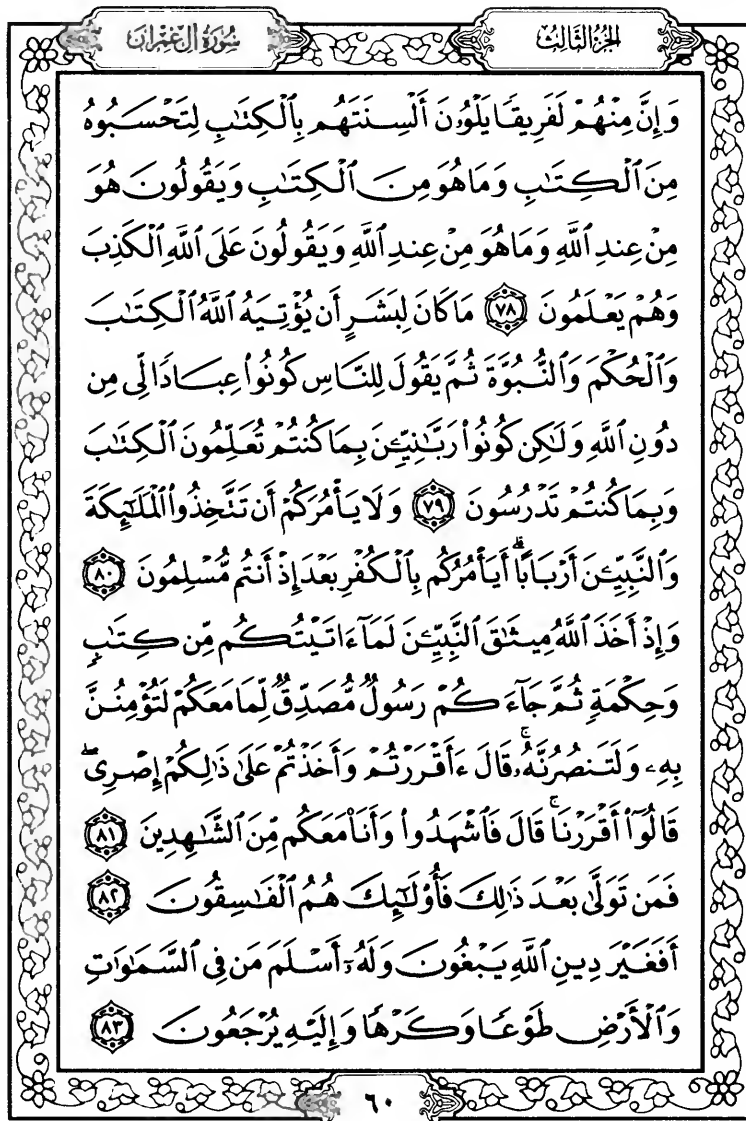 الجزء الثالث
سورة آل عمران
وَإِنَّ مِنْهُمْ لَفَرِيقًا يَلْوُۥنَ أَلْسِنَتَهُم بِٱلْكِتَٰبِ لِتَحْسَبُوهُ
مِنَ ٱلْكِتَٰبِ وَمَا هُوَ مِنَ ٱلْكِتَٰبِ وَيَقُولُونَ هُوَ
مِنْ عِندِ ٱللَّهِ وَمَا هُوَ مِنْ عِندِ ٱللَّهِ وَيَقُولُونَ عَلَى ٱللَّهِ ٱلْكَذِبَ
وَهُمْ يَعْلَمُونَ ﴿٧٨﴾ مَا كَانَ لِبَشَرٍ أَن يُؤْتِيَهُ ٱللَّهُ ٱلْكِتَٰبَ
وَٱلْحُكْمَ وَٱلنُّبُوَّةَ ثُمَّ يَقُولَ لِلنَّاسِ كُونُوا۟ عِبَادًا لِّى مِن
دُونِ ٱللَّهِ وَلَٰكِن كُونُوا۟ رَبَّٰنِيِّۦنَ بِمَا كُنتُمْ تُعَلِّمُونَ ٱلْكِتَٰبَ
وَبِمَا كُنتُمْ تَدْرُسُونَ ﴿٧٩﴾ وَلَا يَأْمُرَكُمْ أَن تَتَّخِذُوا۟ ٱلْمَلَٰٓئِكَةَ
وَٱلنَّبِيِّۦنَ أَرْبَابًا ۗ أَيَأْمُرُكُم بِٱلْكُفْرِ بَعْدَ إِذْ أَنتُم مُّسْلِمُونَ ﴿٨٠﴾
وَإِذْ أَخَذَ ٱللَّهُ مِيثَٰقَ ٱلنَّبِيِّۦنَ لَمَآ ءَاتَيْتُكُم مِّن كِتَٰبٍ
وَحِكْمَةٍ ثُمَّ جَآءَكُمْ رَسُولٌ مُّصَدِّقٌ لِّمَا مَعَكُمْ لَتُؤْمِنُنَّ
بِهِۦ وَلَتَنصُرُنَّهُۥ ۚ قَالَ ءَأَقْرَرْتُمْ وَأَخَذْتُمْ عَلَىٰ ذَٰلِكُمْ إِصْرِى ۖ
قَالُوٓا۟ أَقْرَرْنَا ۚ قَالَ فَٱشْهَدُوا۟ وَأَنَا۠ مَعَكُم مِّنَ ٱلشَّٰهِدِينَ ﴿٨١﴾
فَمَن تَوَلَّىٰ بَعْدَ ذَٰلِكَ فَأُو۟لَٰٓئِكَ هُمُ ٱلْفَٰسِقُونَ ﴿٨٢﴾
أَفَغَيْرَ دِينِ ٱللَّهِ يَبْغُونَ وَلَهُۥٓ أَسْلَمَ مَن فِى ٱلسَّمَٰوَٰتِ
وَٱلْأَرْضِ طَوْعًا وَكَرْهًا وَإِلَيْهِ يُرْجَعُونَ ﴿٨٣﴾
٦٠